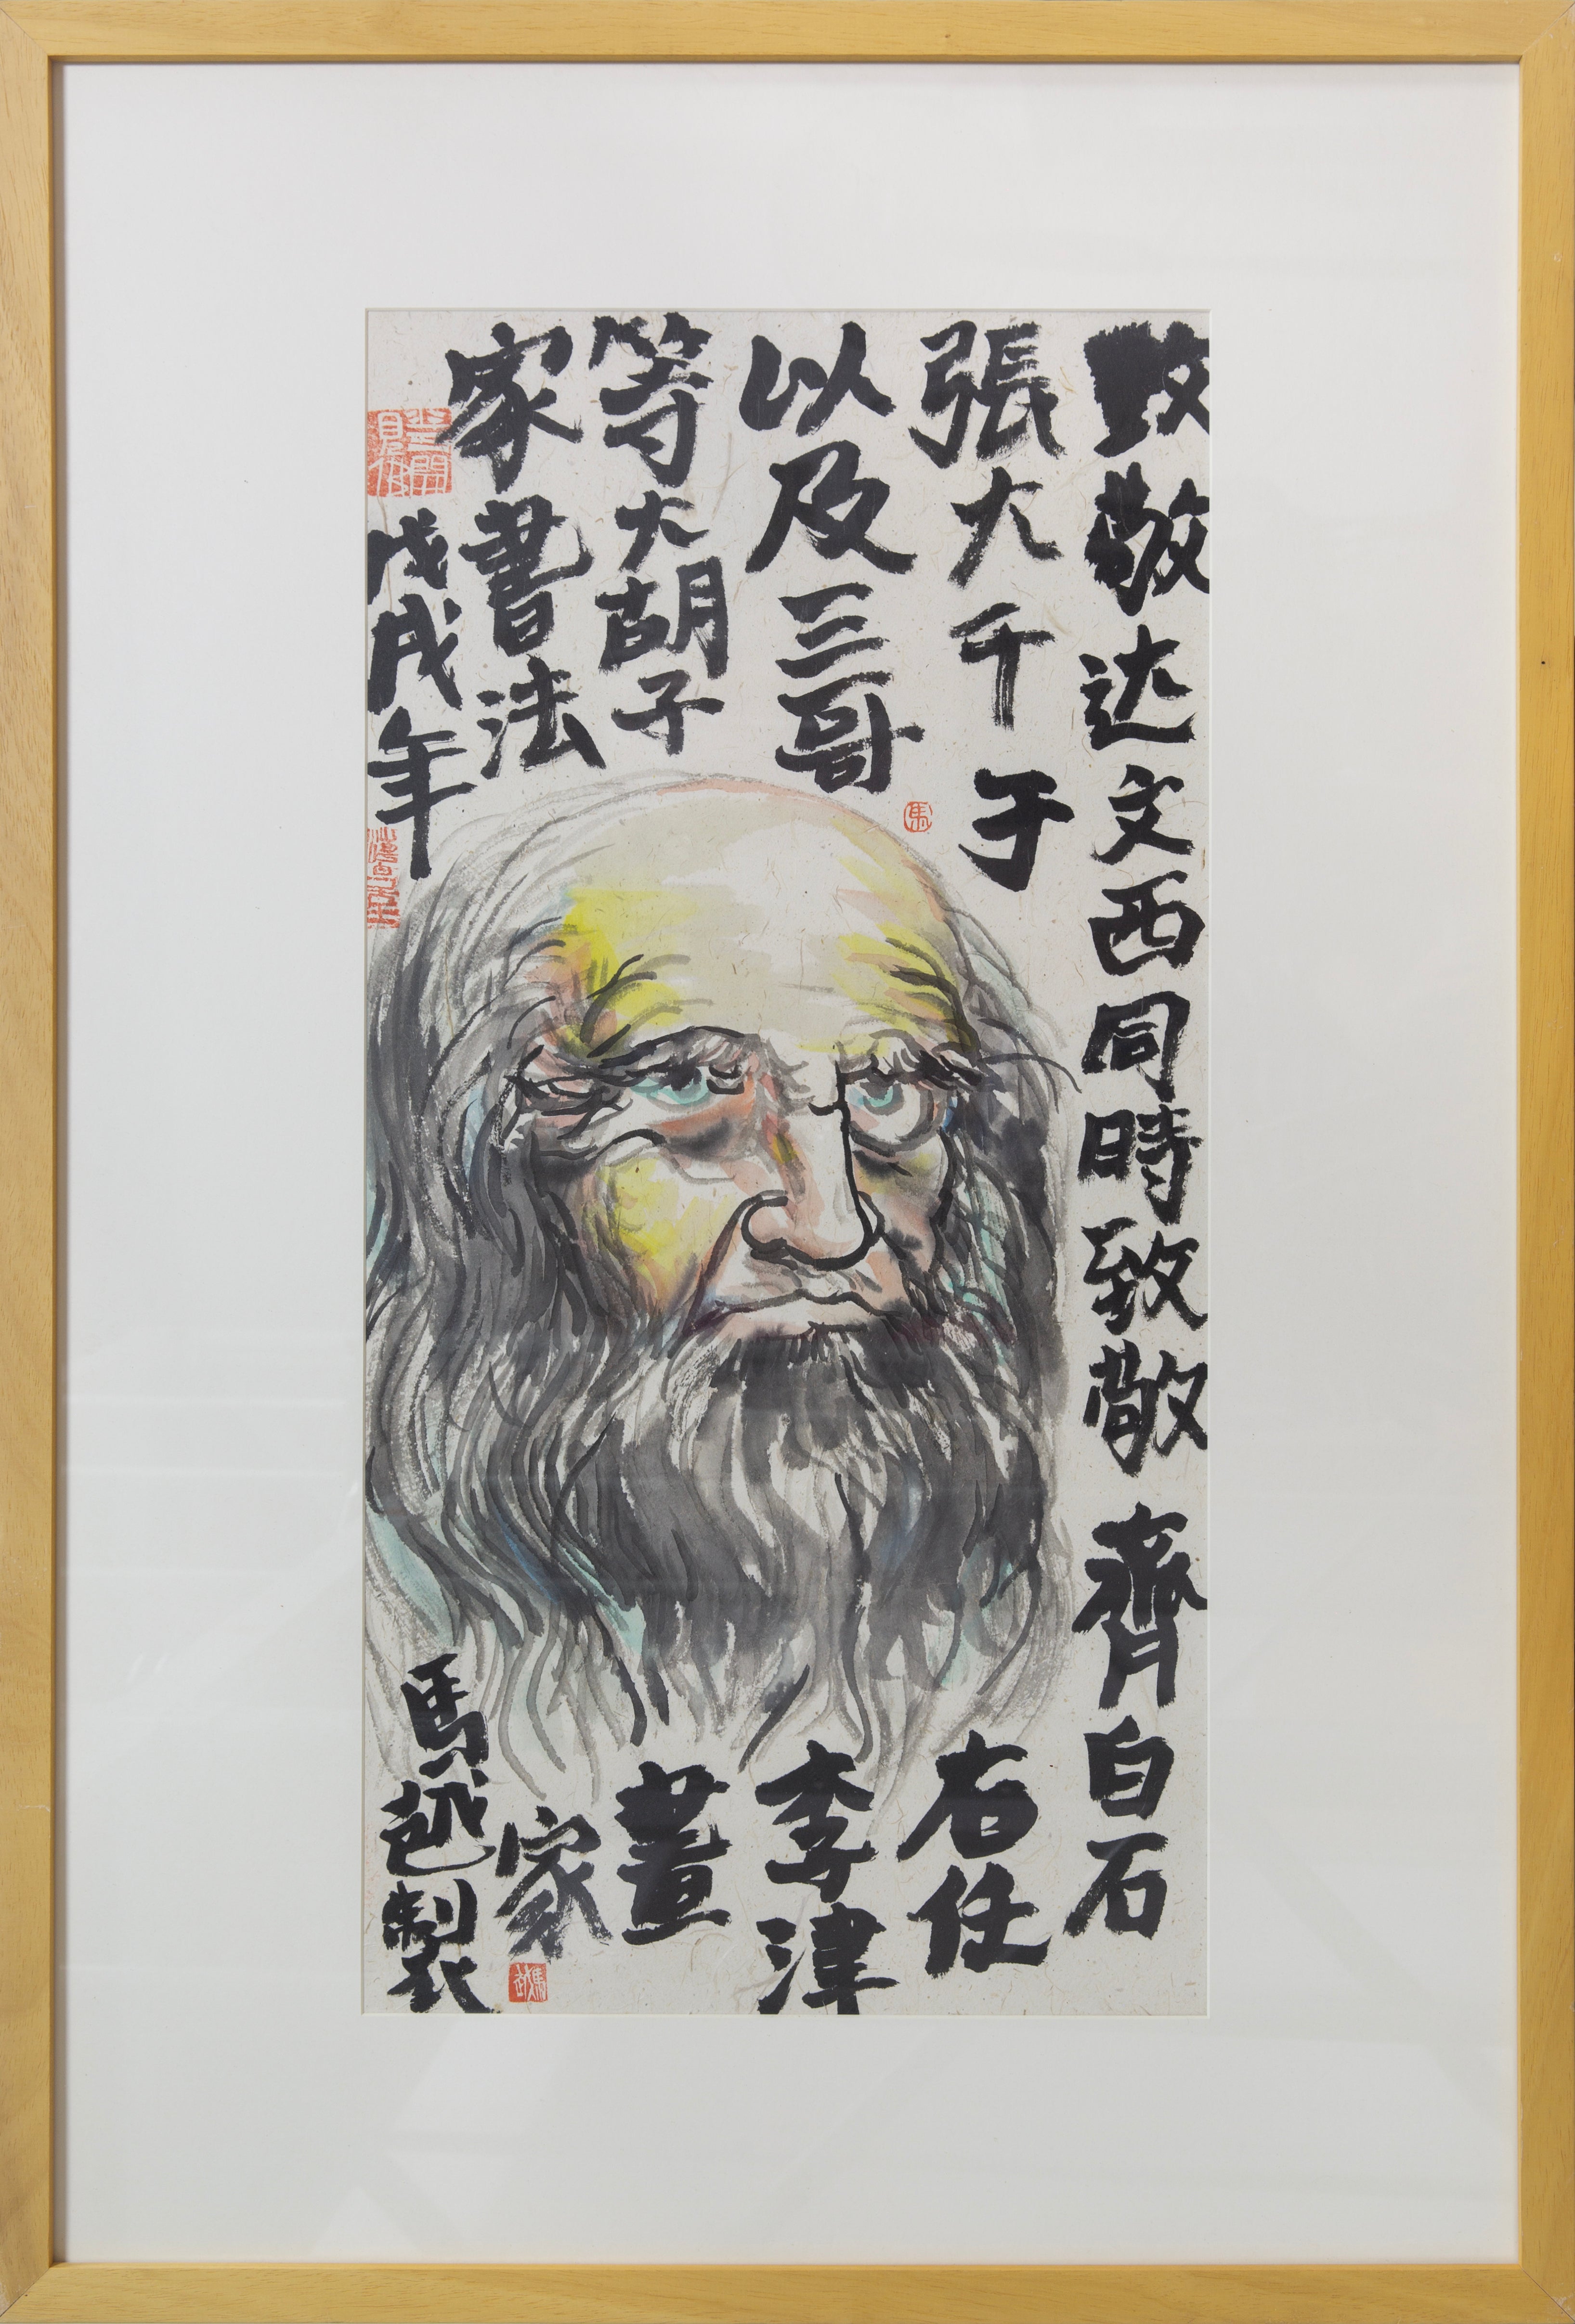 致敬达文西同時致敬齊白石
張大千于右任
以及三哥李津
等大胡子畫
家書法家
戊戌年
馬越製
馬
馬越